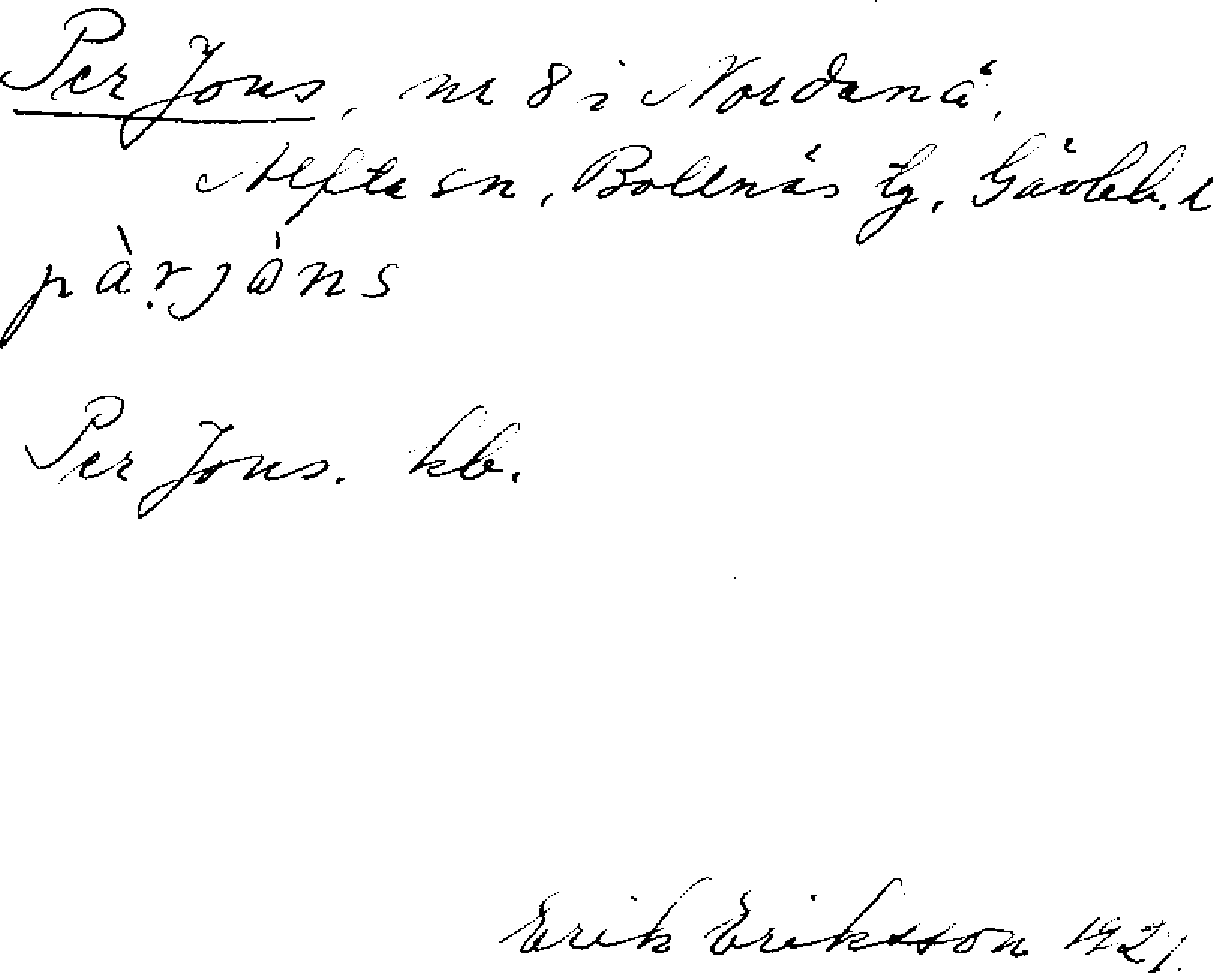 Per Jons, nr 8 i Nordanå,
Alfta sn, Bollnäs tg, Gävleb. l
pàrjòns
Per Jons. kb.
Erik Eriksson 1921.